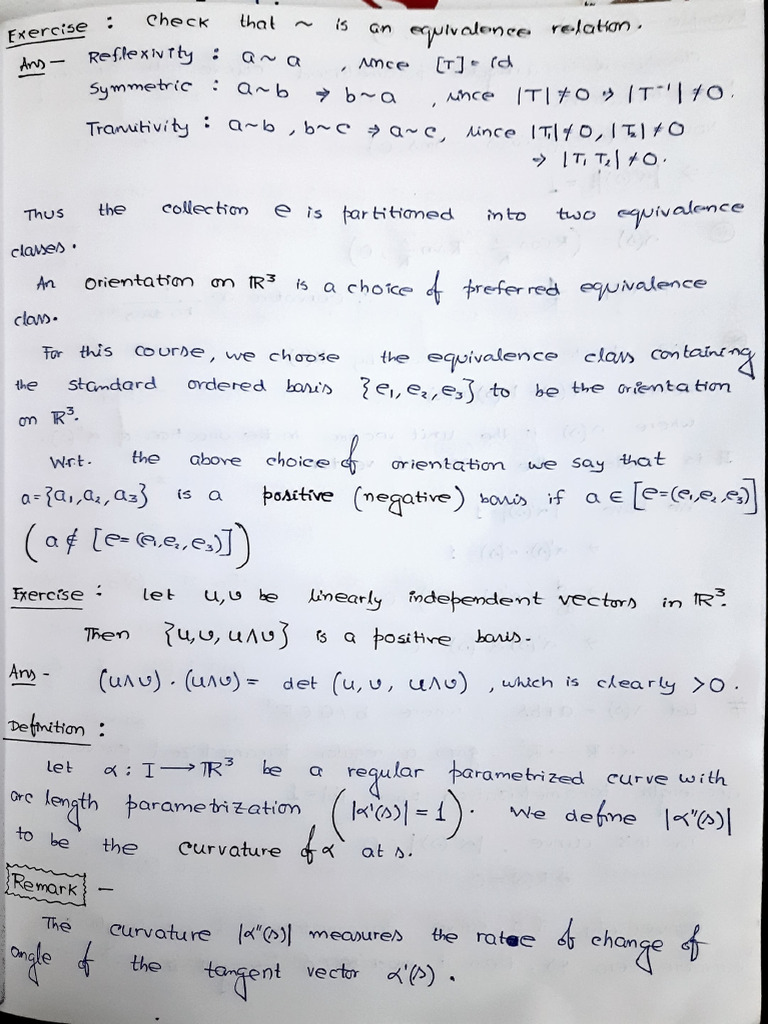 Exercise : Check that ~ is an equivalence relation.
Ans - Reflexivity : a ~ a , since [T] = id
Symmetric : a ~ b ⇒ b ~ a , since |T| ≠ 0 ⇒ |T⁻¹| ≠ 0.
Transitivity : a ~ b , b ~ c ⇒ a ~ c, since |T₁| ≠ 0, |T₂| ≠ 0
⇒ |T₁ T₂| ≠ 0.
Thus the collection e is partitioned into two equivalence
classes.
An orientation on ℝ³ is a choice of preferred equivalence
class.
For this course, we choose the equivalence class containing
the standard ordered basis {e₁, e₂, e₃} to be the orientation
on ℝ³.
Wrt. the above choice of orientation we say that
a = {a₁, a₂, a₃} is a positive (negative) basis if a ∈ [e = (e₁, e₂, e₃)]
(a ∉ [e = (e₁, e₂, e₃)])
Exercise : Let u, v be linearly independent vectors in ℝ³.
Then {u, v, u∧v} is a positive basis.
Ans - (u∧v) . (u∧v) = det (u, v, u∧v) , which is clearly > 0 .
Definition :
Let α : I → ℝ³ be a regular parametrized curve with
arc length parametrization (|α'(s)| = 1). We define |α''(s)|
to be the curvature of α at s.
Remark -
The curvature |α''(s)| measures the rate of change of
angle of the tangent vector α'(s) .